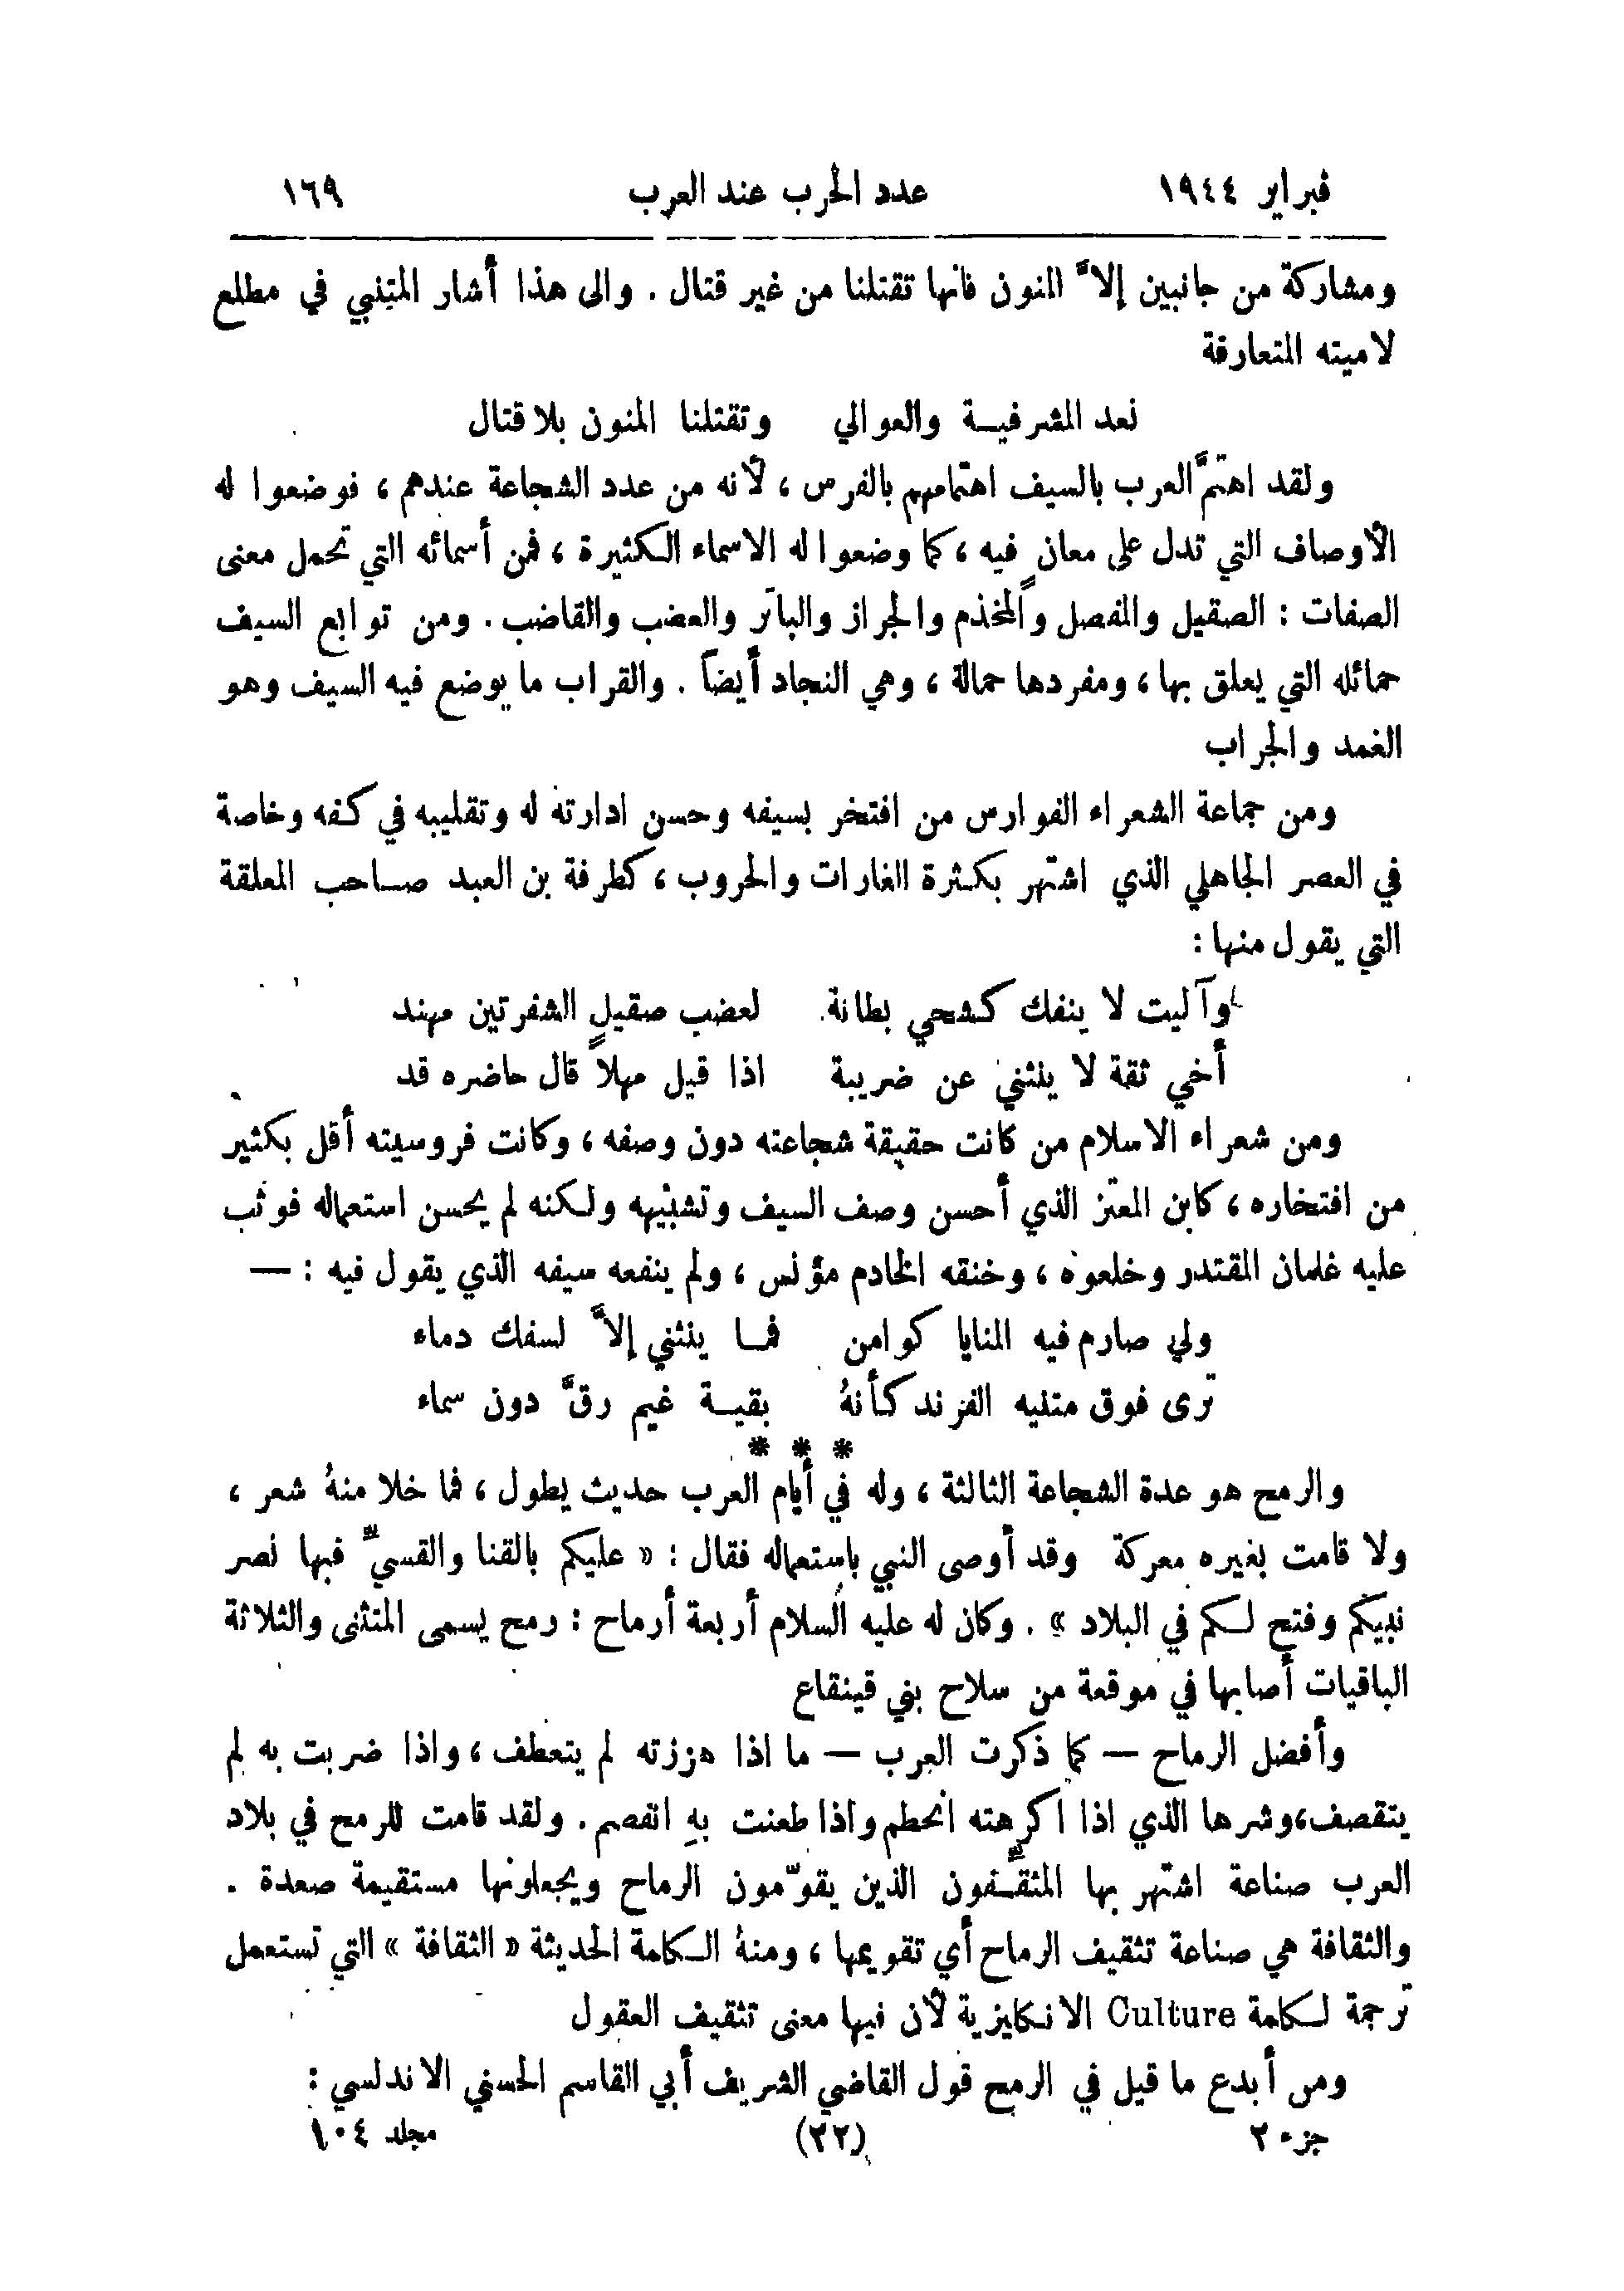 فبراير ١٩٤٤ عدد الحرب عند العرب ١٦٩
ومشاركة من جانبين إلاَّ المنون فانها تقتلنا من غير قتال . والى هذا أشار المتنبي في مطلع
لاميته المتعارفة
نعد المشرفيــة والعوالي وتقتلنا المنون بلا قتال
ولقد اهتمَّ العرب بالسيف اهتمامهم بالفرس ، لأنه من عدد الشجاعة عندهم ، فوضعوا له
الأوصاف التي تدل على معان فيه ، كما وضعوا له الاسماء الكثيرة ، فمن أسمائه التي تحمل معنى
الصفات : الصقيل والمفصل والمخذم والجراز والباتر والعضب والقاضب . ومن توابع السيف
حمائله التي يعلق بها ، ومفردها حمالة ، وهي النجاد أيضاً . والقراب ما يوضع فيه السيف وهو
الغمد والجراب
ومن جماعة الشعراء الفوارس من افتخر بسيفه وحسن ادارته له وتقليبه في كفه وخاصة
في العصر الجاهلي الذي اشتهر بكثرة الغارات والحروب ، كطرفة بن العبد صـاحب المعلقة
التي يقول منها :
وآليت لا ينفك كشحي بطانة لعضب صقيلٍ الشفرتين مهند
أخي ثقة لا ينثني عن ضريبة اذا قيل مهلاً قال حاضره قد
ومن شعراء الاسلام من كانت حقيقة شجاعته دون وصفه ، وكانت فروسيته أقل بكثير
من افتخاره ، كابن المعتز الذي أحسن وصف السيف وتشبيهه ولكنه لم يحسن استعماله فوثب
عليه غلمان المقتدر وخلعوه ، وخنقه الخادم مؤنس ، ولم ينفعه سيفه الذي يقول فيه : —
ولي صارم فيه المنايا كوامن فمـا ينثني إلاَّ لسفك دماء
ترى فوق متنيه الفرند كأنهُ بقيــة غيم رقَّ دون سماء
* * *
والرمح هو عدة الشجاعة الثالثة ، وله في أيام العرب حديث يطول ، فما خلا منهُ شعر ،
ولا قامت بغيره معركة وقد أوصى النبي باستعماله فقال : « عليكم بالقنا والقسيّ فبها نصر
نبيكم وفتح لـكم في البلاد » . وكان له عليه السلام أربعة أرماح : رمح يسمى المتثنى والثلاثة
الباقيات أصابها في موقعة من سلاح بني قينقاع
وأفضل الرماح — كما ذكرت العرب — ما اذا هززته لم يتعطف ، واذا ضربت به لم
يتقصف، وشرها الذي اذا اكرهته انحطم واذا طعنت بهِ انفصم . ولقد قامت للرمح في بلاد
العرب صناعة اشتهر بها المثقّـفون الذين يقوّمون الرماح ويجعلونها مستقيمة صعدة .
والثقافة هي صناعة تثقيف الرماح أي تقويمها ، ومنهُ الـكلمة الحديثة « الثقافة » التي تستعمل
ترجمة لـكلمة Culture الانكليزية لأن فيها معنى تثقيف العقول
ومن أبدع ما قيل في الرمح قول القاضي الشريف أبي القاسم الحسني الاندلسي :
جزء ٢ (٢٢) مجلد ١٠٤